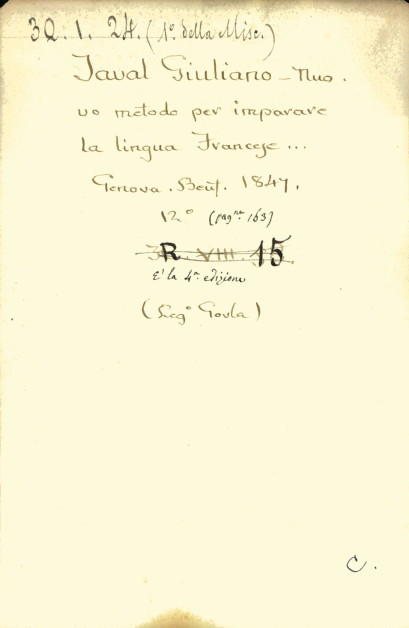 3Q. 1. 24. (1º della Misc.)
Javal Giuliano - Nuo.
vo metodo per imparare
la lingua Francese ...
Genova. Beuf. 1847.
12º (pagne 163)
R VIII 15
E' la 4ª edizione
(Leg° Govla)
C.